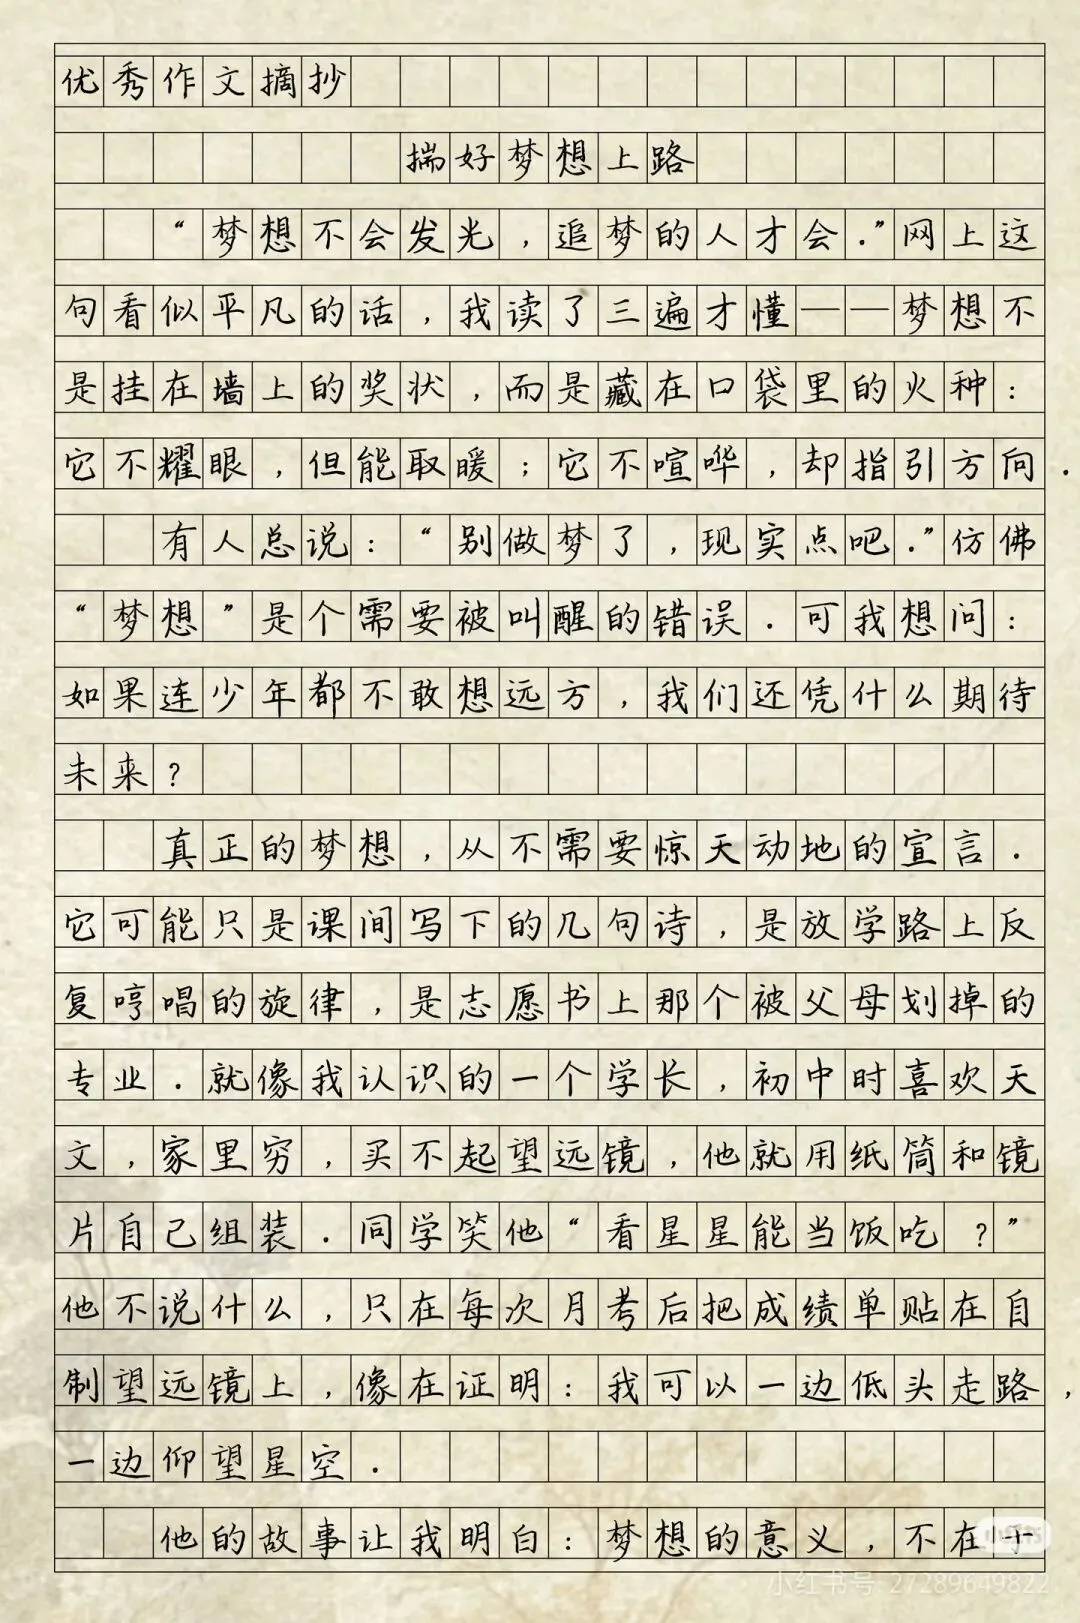 优秀作文摘抄
揣好梦想上路
“梦想不会发光，追梦的人才会.”网上这
句看似平凡的话，我读了三遍才懂——梦想不
是挂在墙上的奖状，而是藏在口袋里的火种：
它不耀眼，但能取暖；它不喧哗，却指引方向.
有人总说：“别做梦了，现实点吧.”仿佛
“梦想”是个需要被叫醒的错误.可我想问：
如果连少年都不敢想远方，我们还凭什么期待
未来？
真正的梦想，从不需要惊天动地的宣言.
它可能只是课间写下的几句诗，是放学路上反
复哼唱的旋律，是志愿书上那个被父母划掉的
专业.就像我认识的一个学长，初中时喜欢天
文，家里穷，买不起望远镜，他就用纸筒和镜
片自己组装.同学笑他“看星星能当饭吃？”
他不说什么，只在每次月考后把成绩单贴在自
制望远镜上，像在证明：我可以一边低头走路，
一边仰望星空.
他的故事让我明白：梦想的意义，不在于
小红书
小红书号: 27289649822